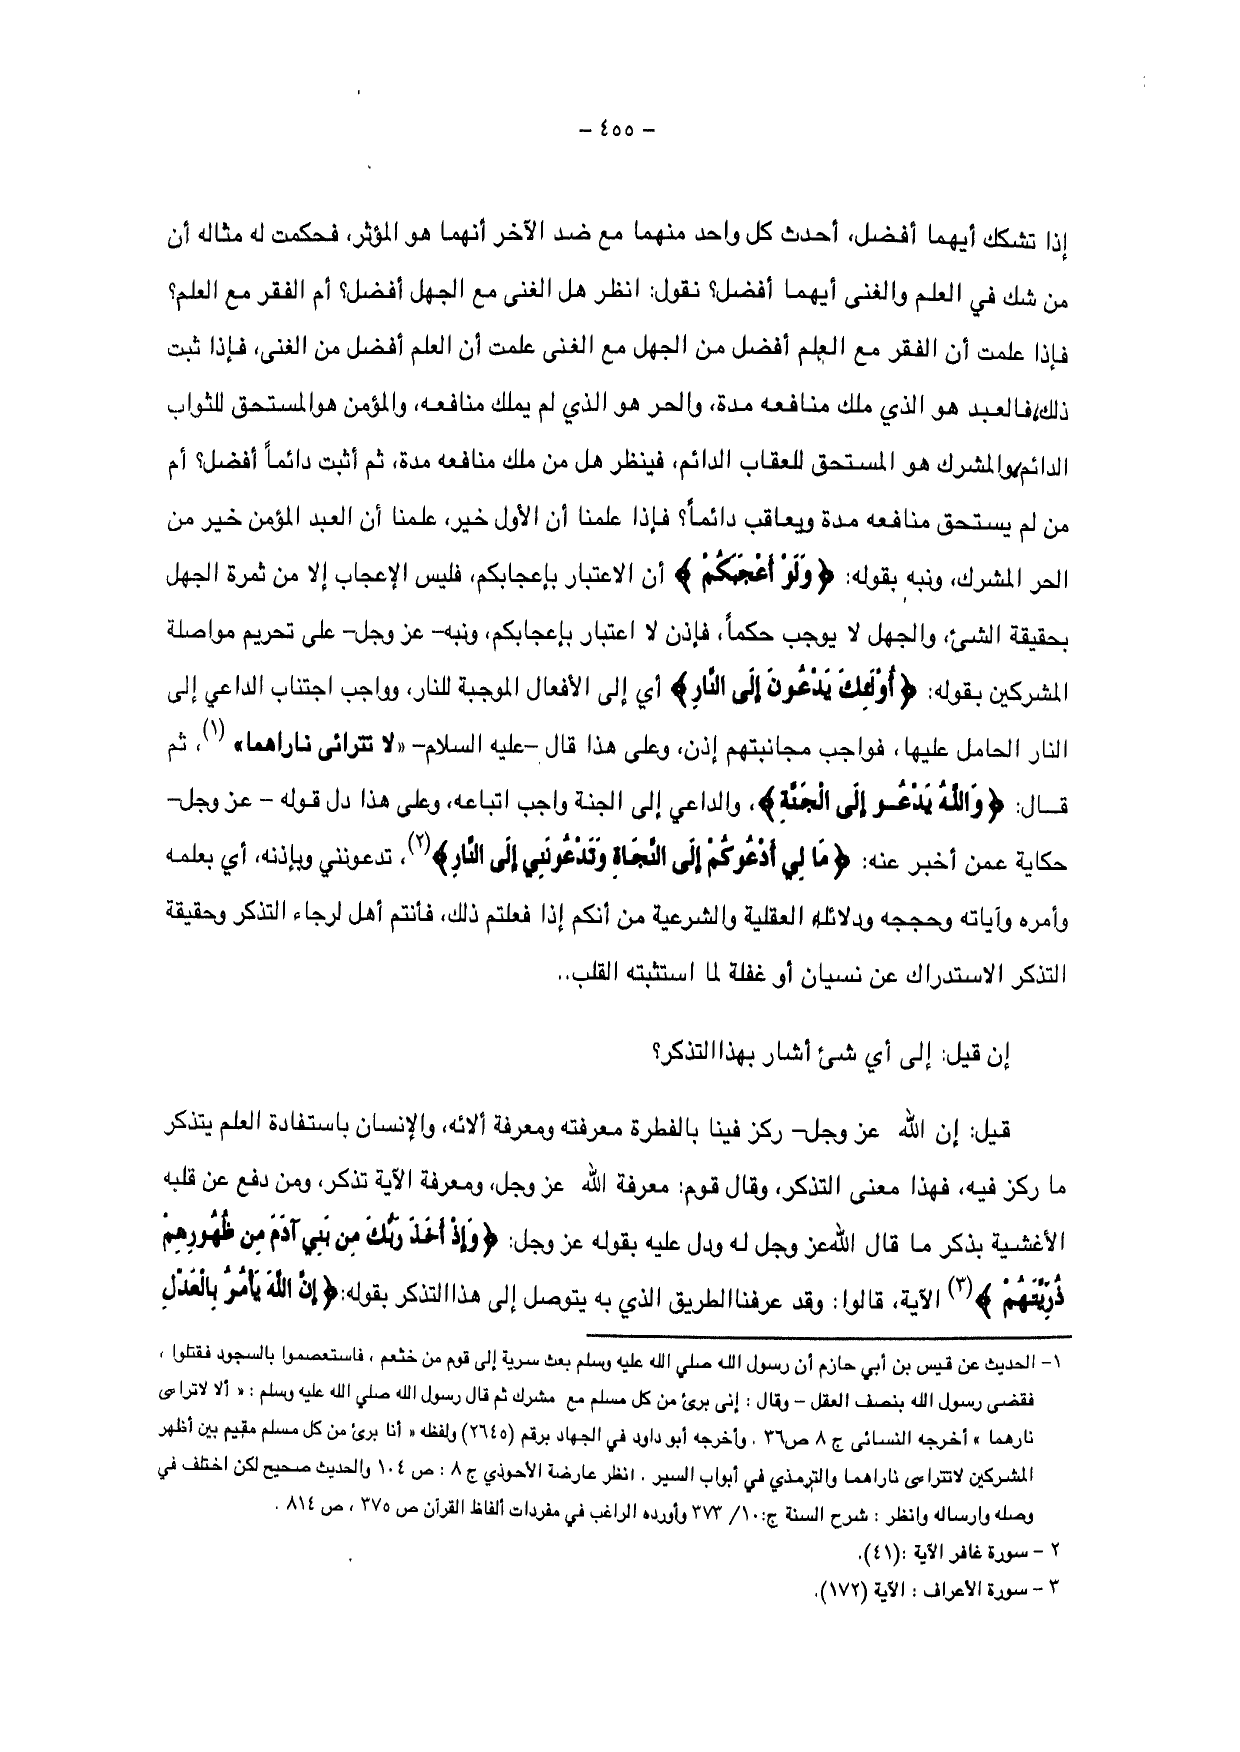 - ٤٥٥ -
إذا تشكك أيهما أفضل، أحدث كل واحد منهما مع ضد الآخر أنهما هو المؤثر، فحكمت له مثاله أن
من شك في العلم والغنى أيهما أفضل؟ نقول: انظر هل الغنى مع الجهل أفضل؟ أم الفقر مع العلم؟
فإذا علمت أن الفقر مع العلم أفضل من الجهل مع الغنى علمت أن العلم أفضل من الغنى، فإذا ثبت
ذلك، فالعبد هو الذي ملك منافعه مدة، والحر هو الذي لم يملك منافعه، والمؤمن هوالمستحق للثواب
الدائم، والمشرك هو المستحق للعقاب الدائم، فينظر هل من ملك منافعه مدة، ثم أثبت دائماً أفضل؟ أم
من لم يستحق منافعه مدة ويعاقب دائماً؟ فإذا علمنا أن الأول خير، علمنا أن العبد المؤمن خير من
الحر المشرك، ونبه بقوله: ﴿ وَلَوْ أَعْجَبَكُمْ ﴾ أن الاعتبار بإعجابكم، فليس الإعجاب إلا من ثمرة الجهل
بحقيقة الشئ، والجهل لا يوجب حكماً، فإذن لا اعتبار بإعجابكم، ونبه- عز وجل- على تحريم مواصلة
المشركين بقوله: ﴿ أُوْلَئِكَ يَدْعُونَ إِلَى النَّارِ﴾ أي إلى الأفعال الموجبة للنار، وواجب اجتناب الداعي إلى
النار الحامل عليها، فواجب مجانبتهم إذن، وعلى هذا قال -عليه السلام- «لا تترائى ناراهما» (١)، ثم
قـال: ﴿ وَاللَّهُ يَدْعُـو إِلَى الْجَنَّةِ﴾، والداعي إلى الجنة واجب اتباعه، وعلى هذا دل قوله - عز وجل-
حكاية عمن أخبر عنه: ﴿ مَا لِي أَدْعُوكُمْ إِلَى النَّجَاةِ وَتَدْعُونَنِي إِلَى النَّارِ﴾(٢)، تدعونني وبإذنه، أي بعلمه
وأمره وآياته وحججه ودلائله العقلية والشرعية من أنكم إذا فعلتم ذلك، فأنتم أهل لرجاء التذكر وحقيقة
التذكر الاستدراك عن نسيان أو غفلة لما استثبته القلب..
إن قيل: إلى أي شئ أشار بهذاالتذكر؟
قيل: إن الله عز وجل- ركز فينا بالفطرة معرفته ومعرفة ألائه، والإنسان باستفادة العلم يتذكر
ما ركز فيه، فهذا معنى التذكر، وقال قوم: معرفة الله عز وجل، ومعرفة الآية تذكر، ومن دفع عن قلبه
الأغشية بذكر ما قال اللهعز وجل له ودل عليه بقوله عز وجل: ﴿ وَإِذْ أَخَذَ رَبُّكَ مِن بَنِي آدَمَ مِن ظُهُورِهِمْ
ذُرِّيَّتَهُمْ ﴾(٣) الآية، قالوا: وقد عرفناالطريق الذي به يتوصل إلى هذاالتذكر بقوله:﴿ إِنَّ اللَّهَ يَأْمُرُ بِالْعَدْلِ
١- الحديث عن قيس بن أبي حازم أن رسول الله صلي الله عليه وسلم بعث سرية إلى قوم من خثعم ، فاستعصموا بالسجود فقتلوا ،
فقضى رسول الله بنصف العقل - وقال : إنى برئ من كل مسلم مع مشرك ثم قال رسول الله صلي الله عليه وسلم : « ألا لاتراءى
نارهما » أخرجه النسائى ج ٨ ص٣٦ . وأخرجه أبو داود في الجهاد برقم (٢٦٤٥) ولفظه « أنا برئ من كل مسلم مقيم بين أظهر
المشركين لاتتراءى ناراهما والترمذي في أبواب السير . انظر عارضة الأحوذي ج ٨ : ص ١٠٤ والحديث صحيح لكن اختلف في
وصله وارساله وانظر : شرح السنة ج:١٠/ ٣٧٣ وأورده الراغب في مفردات ألفاظ القرآن ص ٣٧٥ ، ص ٨١٤ .
٢ - سورة غافر الآية :(٤١).
٣ - سورة الأعراف : الآية (١٧٢).